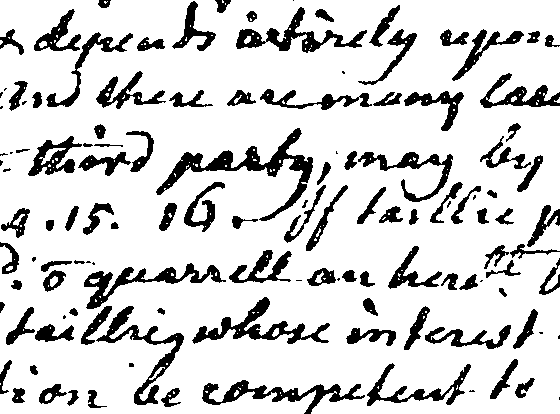 & depends intirely upon
and there are many cas
third party, may by
4. 15. 16. If taillie p
o quarrell an herit
taillie, whose interest
tion be competent to